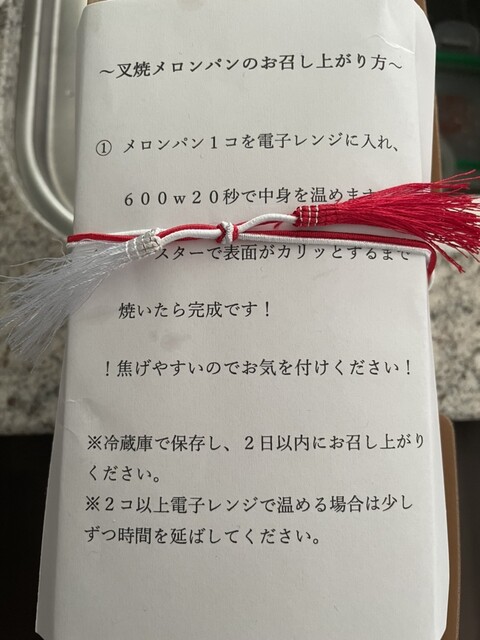 ~叉焼メロンパンのお召し上がり方~
① メロンパン１コを電子レンジに入れ、
６００ｗ２０秒で中身を温めます
スターで表面がカリッとするまで
焼いたら完成です！
！焦げやすいのでお気を付けください！
※冷蔵庫で保存し、２日以内にお召し上がり
ください。
※２コ以上電子レンジで温める場合は少し
ずつ時間を延ばしてください。